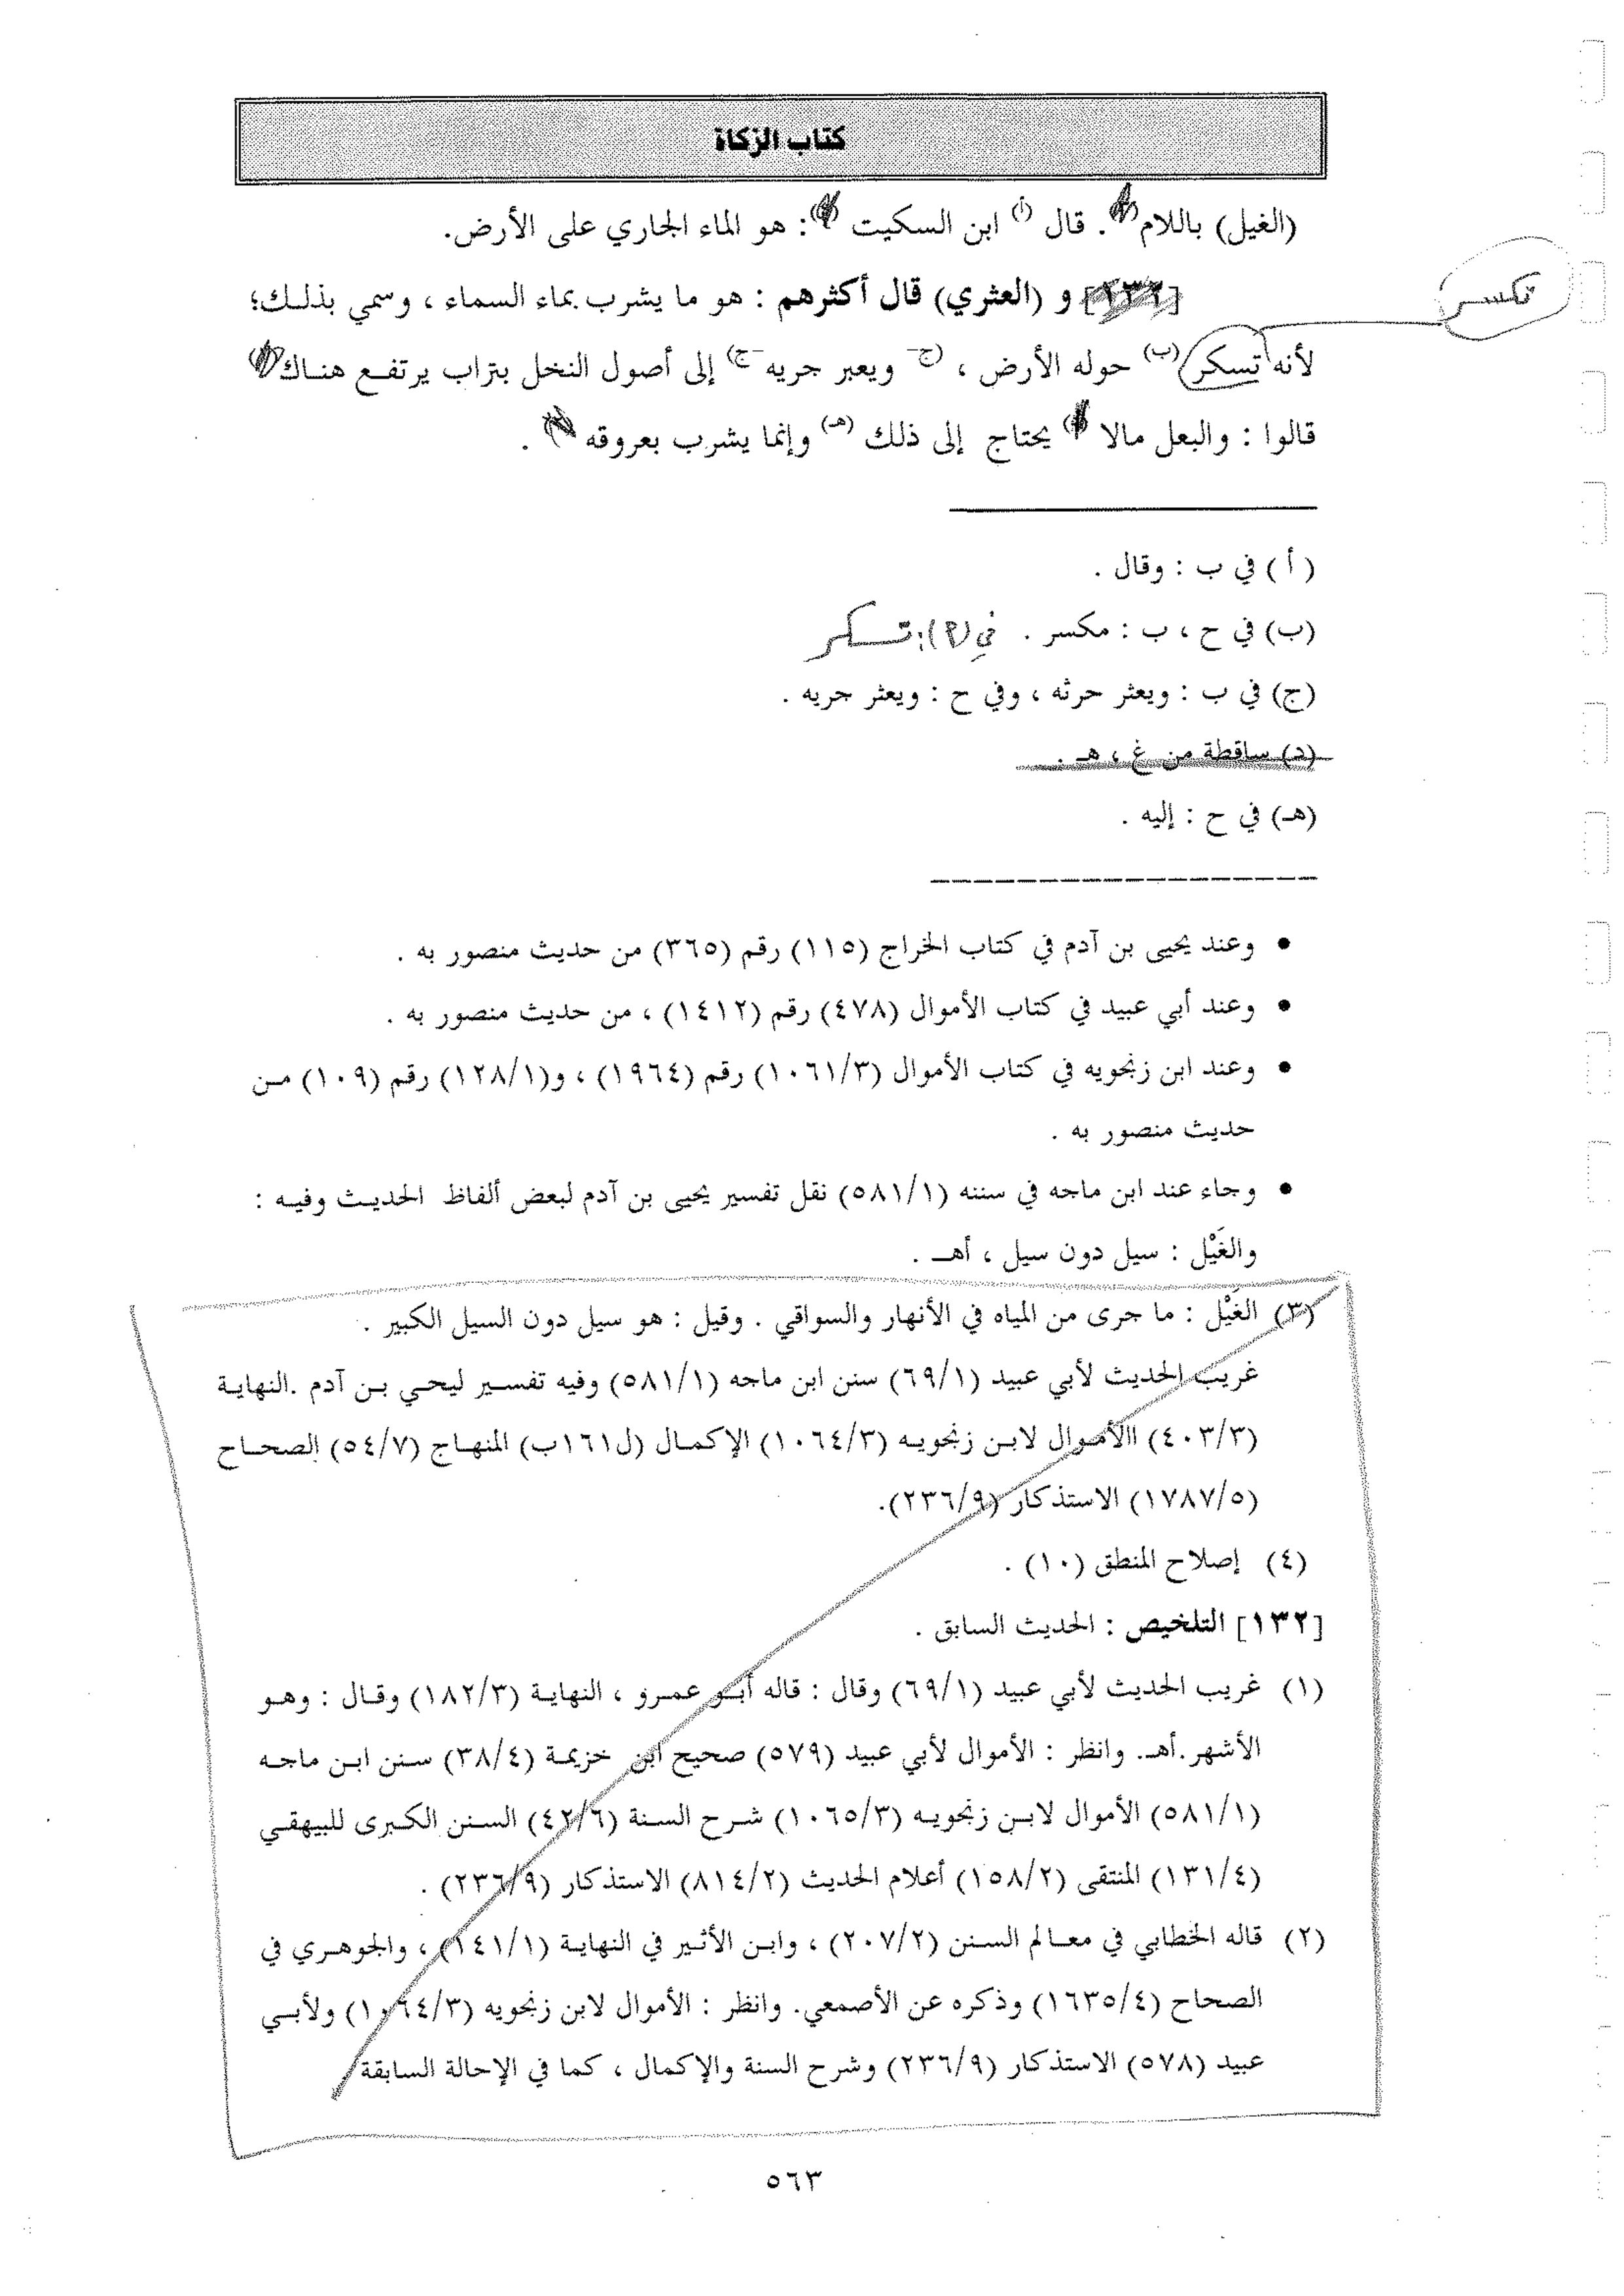 كتاب الزكاة
(الغيل) باللام . قال (أ) ابن السكيت : هو الماء الجاري على الأرض.
تكسر
[١٣٢] و (العثري) قال أكثرهم : هو ما يشرب بماء السماء ، وسمي بذلـك؛
لأنه تسكر (ب) حوله الأرض ، (ج- ويعبر جريه -ج) إلى أصول النخل بتراب يرتفـع هنـاك
قالوا : والبعل مالا يحتاج إلى ذلك (هـ) وإنما يشرب بعروقه .
( أ ) في ب : وقال .
(ب) في ح ، ب : مكسر . في (م): تسكر
(ج) في ب : ويعثر حرثه ، وفي ح : ويعثر جريه .
(د) ساقطة من غ ، هـ .
(هـ) في ح : إليه .
• وعند يحيى بن آدم في كتاب الخراج (١١٥) رقم (٣٦٥) من حديث منصور به .
• وعند أبي عبيد في كتاب الأموال (٤٧٨) رقم (١٤١٢) ، من حديث منصور به .
• وعند ابن زنجويه في كتاب الأموال (١٠٦١/٣) رقم (١٩٦٤) ، و(١٢٨/١) رقم (١٠٩) مـن
حديث منصور به .
• وجاء عند ابن ماجه في سننه (٥٨١/١) نقل تفسير يحيى بن آدم لبعض ألفاظ الحديـث وفيـه :
والغَيْل : سيل دون سيل ، أهـ .
(٣) الغَيْل : ما جرى من المياه في الأنهار والسواقي . وقيل : هو سيل دون السيل الكبير .
غريب الحديث لأبي عبيد (٦٩/١) سنن ابن ماجه (٥٨١/١) وفيه تفسـير ليحـي بـن آدم .النهايـة
(٤٠٣/٣) االأمـوال لابـن زنجويـه (١٠٦٤/٣) الإكمـال (ل١٦١ب) المنهـاج (٥٤/٧) الصحـاح
(١٧٨٧/٥) الاستذكار (٢٣٦/٩).
(٤) إصلاح المنطق (١٠) .
[١٣٢] التلخيص : الحديث السابق .
(١) غريب الحديث لأبي عبيد (٦٩/١) وقال : قاله أبـو عمـرو ، النهايـة (١٨٢/٣) وقـال : وهـو
الأشهر.أهـ. وانظر : الأموال لأبي عبيد (٥٧٩) صحيح ابن خزيمـة (٣٨/٤) سـنن ابـن ماجـه
(٥٨١/١) الأموال لابـن زنجويـه (١٠٦٥/٣) شـرح السـنة (٤٢/٦) السـنن الكـبرى للبيهقـي
(١٣١/٤) المنتقى (١٥٨/٢) أعلام الحديث (٨١٤/٢) الاستذكار (٢٣٦/٩) .
(٢) قاله الخطابي في معـالم السـنن (٢٠٧/٢) ، وابـن الأثـير في النهايـة (١٤١/١) ، والجوهـري في
الصحاح (١٦٣٥/٤) وذكره عن الأصمعي. وانظر : الأموال لابن زنجويه (١٠٦٤/٣) ولأبـي
عبيد (٥٧٨) الاستذكار (٢٣٦/٩) وشرح السنة والإكمال ، كما في الإحالة السابقة
٥٦٣